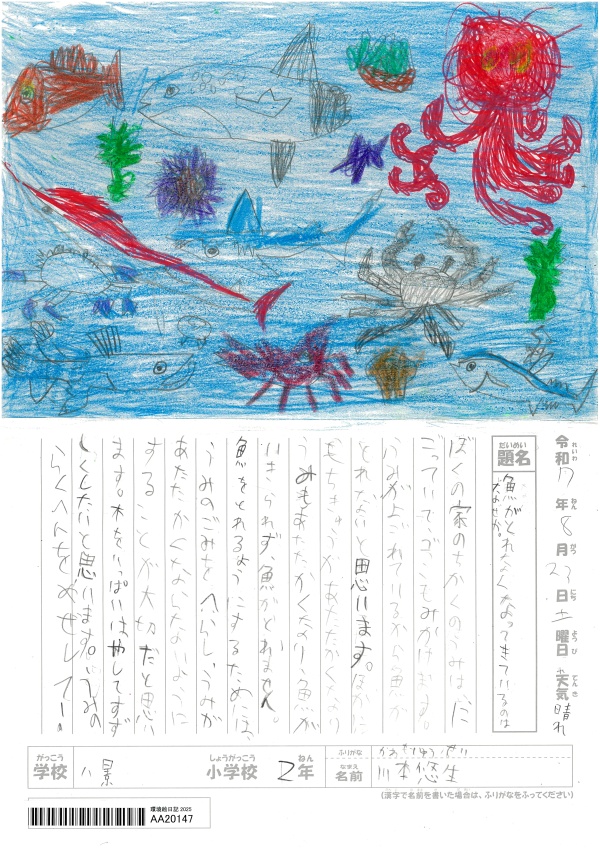 令和7年8月23日土曜日 天気晴れ
れいわ ねん がつ にち ようび てんき
だいめい
題名
魚がとれなくなってきているのは
なぜか。
ぼくの家のちかくのうみは、に
ごっていて、ゴミもみかけます。
うみがよごれているから魚が
とれないと思います。ほかに
もちきゅうがあたたかくなり
うみもあたたかくなり、魚が
いきられず、魚がとれません。
魚をとれるようにするためには、
うみのごみをへらし、うみが
あたたかくならないように
することが大切だと思い
ます。木をいっぱいはやしてすず
しくしたいと思います。うみの
らくえんをめざしてー!
がっこう
学校
八景
しょうがっこう
小学校
2年
ねん
ふりがな
なまえ
名前
川本悠生
(漢字で名前を書いた場合は、ふりがなをふってください)
環境絵日記 2025
AA20147